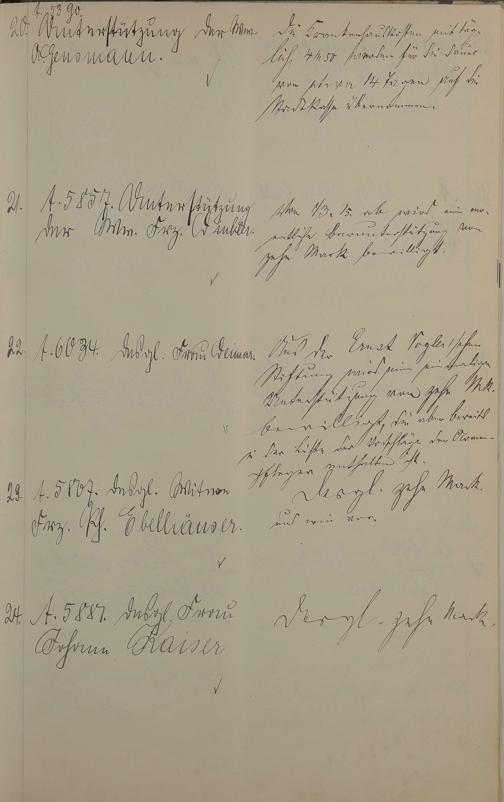 A. 5390.
20. Unterstützung der Ww.
Gensmann.
Die Krankenhauskosten mit täg-
lich 4 M 50 werden für die Dauer
von etwa 14 Tagen auf die
Stadtkasse übernommen.
21. A. 5857. Unterstützung
der Ww. Frz.
Vom 1/3. 15. ab wird eine mo-
natliche Barunterstützung von
zehn Mark bewilligt.
22. A. 6034. Desgl. Frau Deimar.
Aus der Ernst Vogler'schen
Stiftung wird eine einmalige
Unterstützung von zehn Mk.
bewilligt, die aber bereits
in der Liste der Vorschläge der Armen-
pfleger enthalten ist.
23. A. 5807. Desgl. Witwe
Frz. Ph. Ebelhäuser.
Desgl. zehn Mark.
und wie vor.
24. A. 5887. Desgl. Frau
Johann Kaiser
Desgl. zehn Mark.